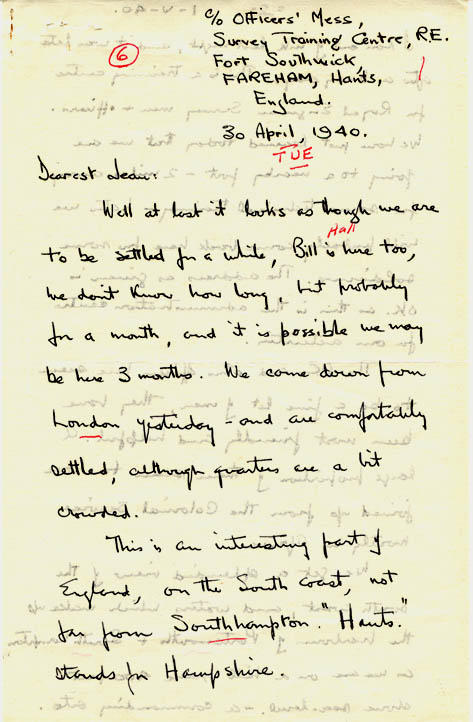 c/o Officers' Mess,
Survey Training Centre, R.E.
Fort Southwick,
FAREHAM, Hants,
England.
6
1
30 April, 1940.
TUE
Dearest Jean:
Well at last it looks as though we are
Hall
to be settled for a while, Bill is here too,
we don't know how long, but probably
for a month, and it is possible we may
be here 3 months. We came down from
London yesterday - and are comfortably
settled, although quarters are a bit
crowded.
This is an interesting part of
England, on the South coast, not
far from Southhampton. "Hants."
stands for Hampshire.